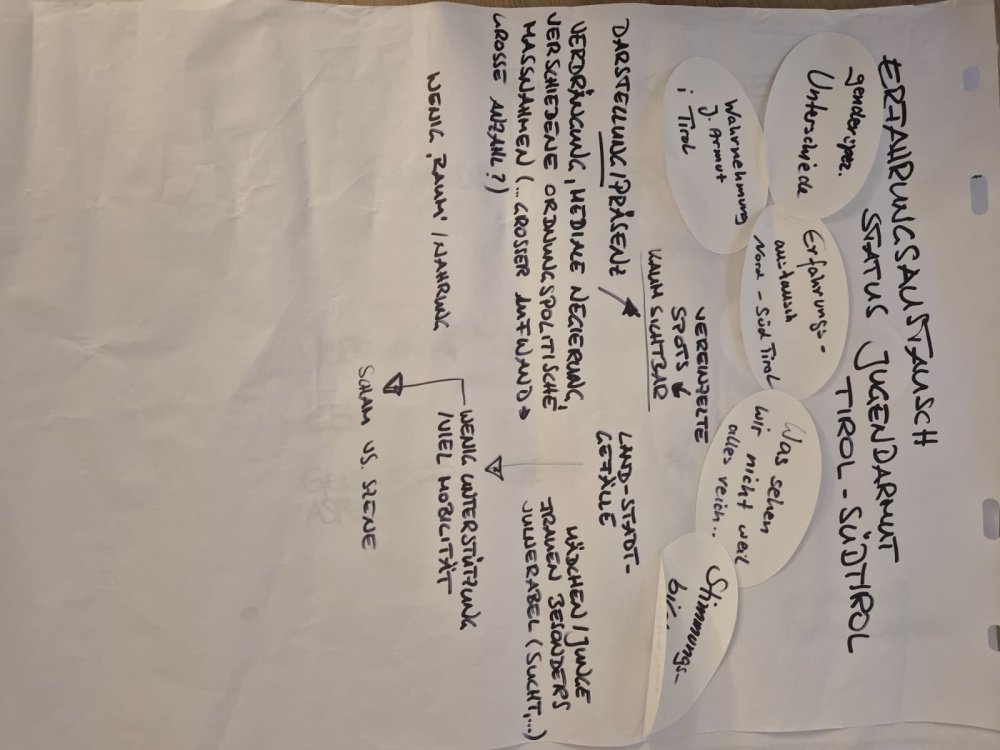 ERFAHRUNGSAUSTAUSCH
STATUS JUGENDARMUT
TIROL - SÜDTIROL
genderspez.
Unterschiede
Wahrnehmung
J. Armut
i Tirol
Erfahrungs-
austausch
Nord - Süd Tirol
Was sehen
wir nicht weil
alles reich...
Stimmungs-
DARSTELLUNG/PRÄSENZ
KAUM SICHTBAR
VEREINZELTE
SPOTS
VERDRÄNGUNG, MEDIALE NEGIERUNG,
VERSCHIEDENE ORDNUNGSPOLITISCHE
MASSNAHMEN (... GROSSER AUFWAND →
GROSSE ANZAHL?)
LAND-STADT-
GEFÄLLE
MÄDCHEN / JUNGE
FRAUEN BESONDERS
VULNERABEL (SUCHT,...)
WENIG „RAUM“ / NAHRUNG
WENIG UNTERSTÜTZUNG
/VIEL MOBILITÄT
SCHAM VS. SZENE